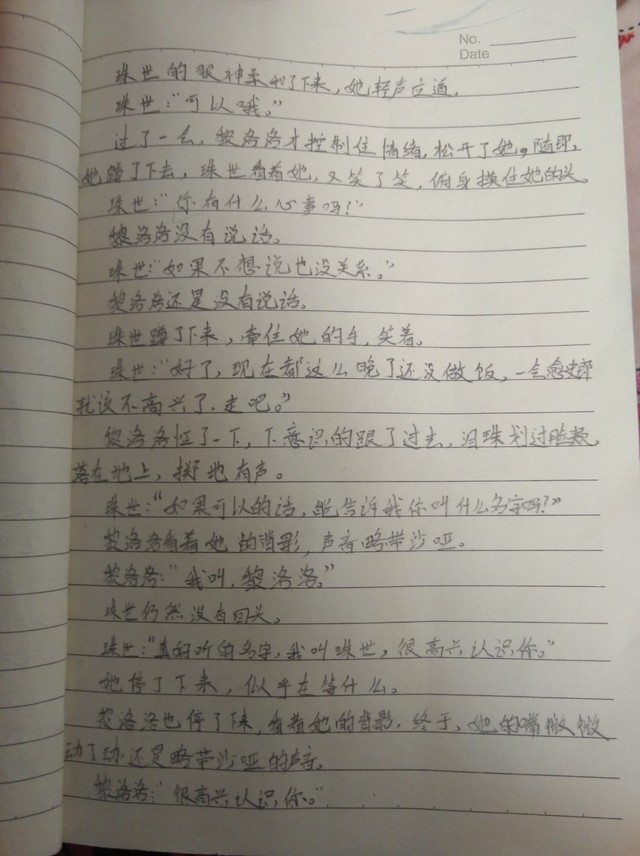 No.
Date
珠世的眼神柔和了下来,她轻声应道。
珠世:“可以哦。”
过了一会,黎洛洛才控制住情绪,松开了她。随即,
她蹲了下去,珠世看着她,又笑了笑,俯身摸住她的头。
珠世:“你有什么心事吗?”
黎洛洛没有说话。
珠世:“如果不想说也没关系。”
黎洛洛还是没有说话。
珠世蹲了下来,牵住她的手,笑着。
珠世:“好了,现在都这么晚了还没做饭,一会愈史郎
就该不高兴了,走吧。”
黎洛洛怔了一下,下意识的跟了过去,泪珠划过脸颊
落在地上,掷地有声。
珠世:“如果可以的话,能告诉我你叫什么名字吗?”
黎洛洛看着她的背影,声音略带沙哑。
黎洛洛:“我叫,黎洛洛。”
珠世仍然没有回头。
珠世:“真好听的名字,我叫珠世,很高兴认识你。”
她停了下来,似乎在等什么。
黎洛洛也停了下来,看着她的背影,终于,她的嘴微微
动了动还是略带沙哑的声音。
黎洛洛:“很高兴认识你。”